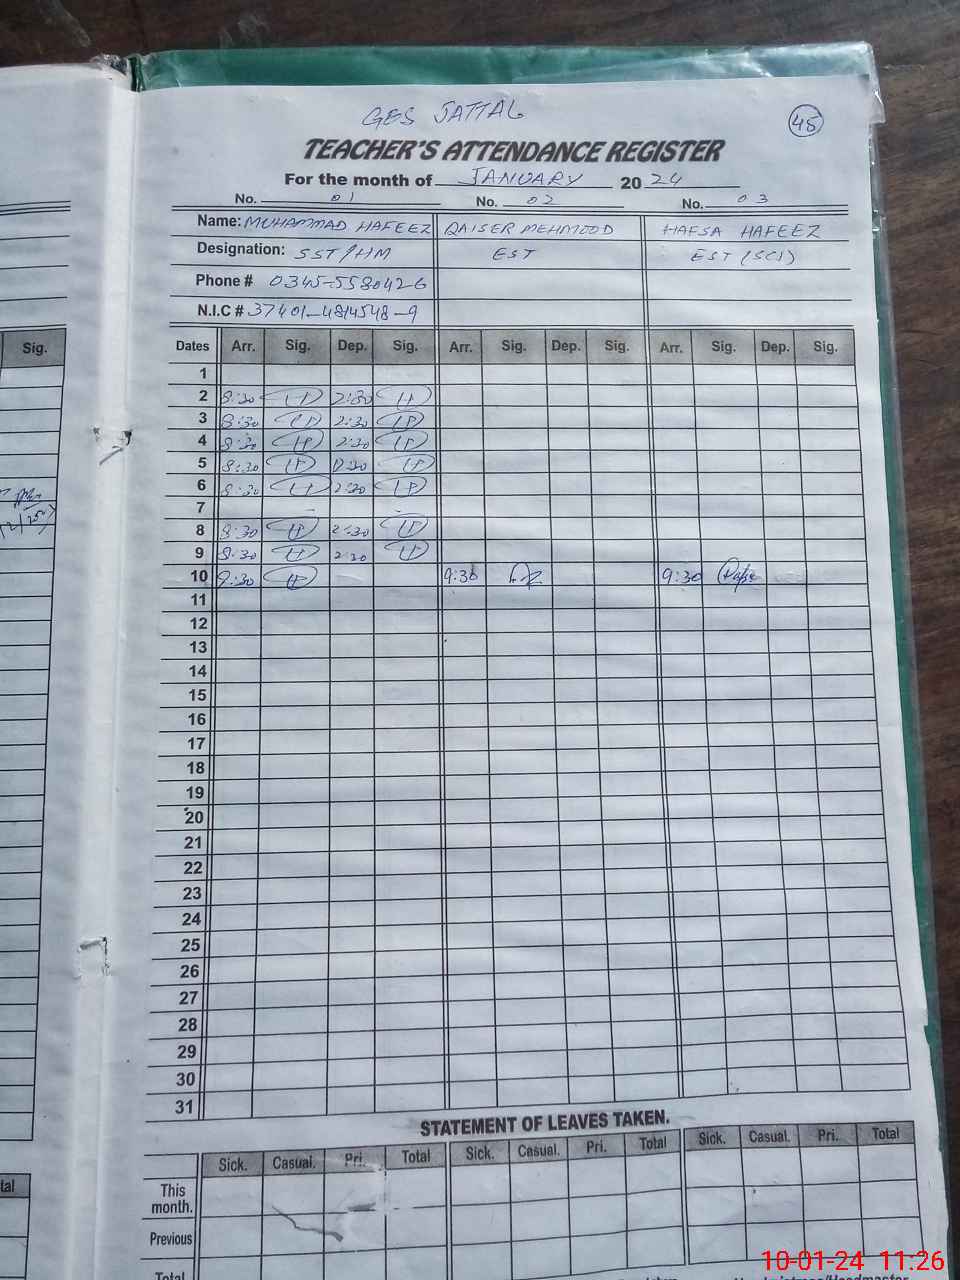 GES JATTAL
45
TEACHER'S ATTENDANCE REGISTER
For the month of JANUARY 2024
No. 01 No. 02 No. 03
Name: MUHAMMAD HAFEEZ QAISER MEHMOOD HAFSA HAFEEZ
Designation: SST/HM EST EST (SCI)
Phone # 0345-5580426
N.I.C # 37401-4814548-9
Sig.
Dates Arr. Sig. Dep. Sig. Arr. Sig. Dep. Sig. Arr. Sig. Dep. Sig.
1
2 8:30 2:30
3 8:30 2:30
4 8:30 2:30
5 8:30 :30
6 8:30 2:30
7
8 8:30 2:30
9 8:30 2:30
10 9:30 9:30
11
12
13
14
15
16
17
18
19
20
21
22
23
24
25
26
27
28
29
30
31
STATEMENT OF LEAVES TAKEN.
Sick. Casual. Pri. Total Sick. Casual. Pri. Total Sick. Casual. Pri. Total
tal
This
month.
Previous
Total
10-01-24 11:26